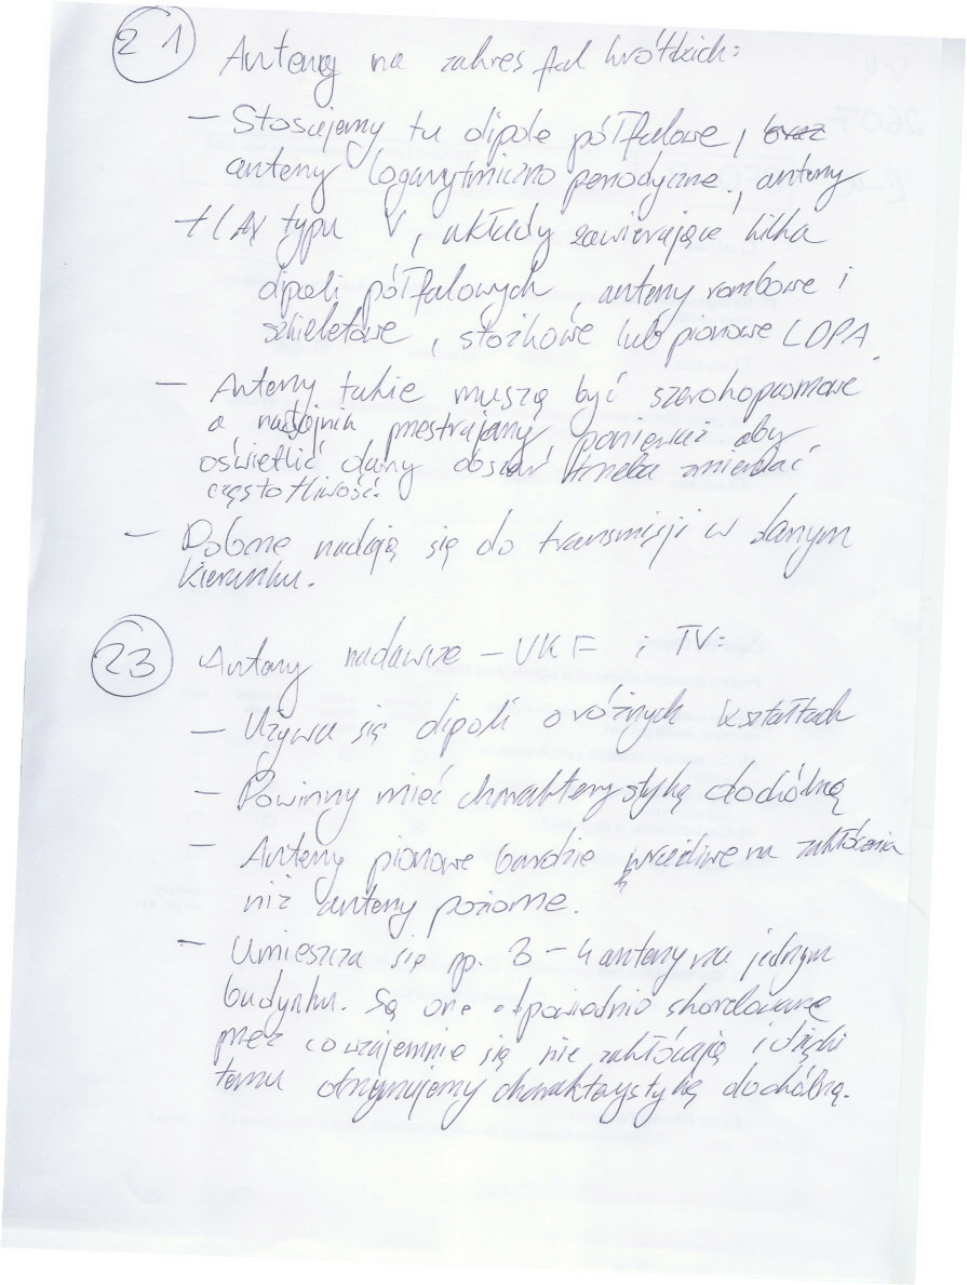 21 Anteny na zakres fal krótkich:
– Stosujemy tu dipole półfalowe, oraz
anteny logarytmiczno periodyczne, anteny
typu V, układy zawierające kilka
dipoli półfalowych, anteny rombowe i
szkieletowe, stożkowe lub pionowe LDPA.
– Anteny takie muszą być szerokopasmowe
a nadajnik przestrajany, ponieważ aby
oświetlić dany obszar trzeba zmieniać
częstotliwość.
– Dobrze nadają się do transmisji w danym
kierunku.
23 Anteny nadawcze – UKF i TV:
– Używa się dipoli o różnych kształtach
– Powinny mieć charakterystykę dookólną
– Anteny pionowe bardzie wrażliwe na zakłócenia
niż anteny poziome.
– Umieszcza się np. 3 – 4 anteny na jednym
budynku. Są one odpowiednio skorelowane
przez co wzajemnie się nie zakłócają i dzięki
temu otrzymujemy charakterystykę dookólną.